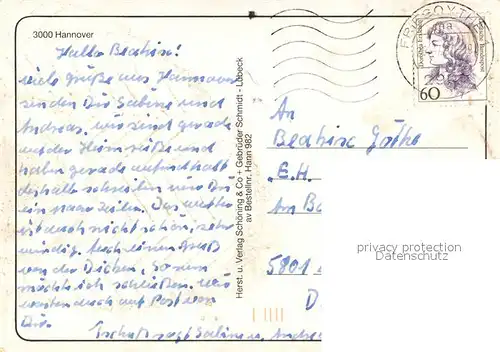 3000 Hannover
Hallo Beatrice!
viele Grüße aus Hannover
senden Dir Sabine und
Andreas. wir sind gerade
auf der Heimreise und
haben gerade Aufenthalt
deshalb schreiben wir Dir
ein paar Zeilen. Das Wetter
ist auch nicht schön, sehr
windig. Auch einen Gruß
von der Dicken, so nun
möcht ich schließen. wir
warten auch auf Post von
Dir.
Tschüß sagt Sabine u.
Herst. u. Verlag Schöning & Co + Gebrüder Schmidt - Lübeck
av Bestellnr. Hann 982
FRIESOYTHE
Deutsche Bundespost
60
An
Beatrice
E.H.
Am
5801
D
privacy protection
Datenschutz